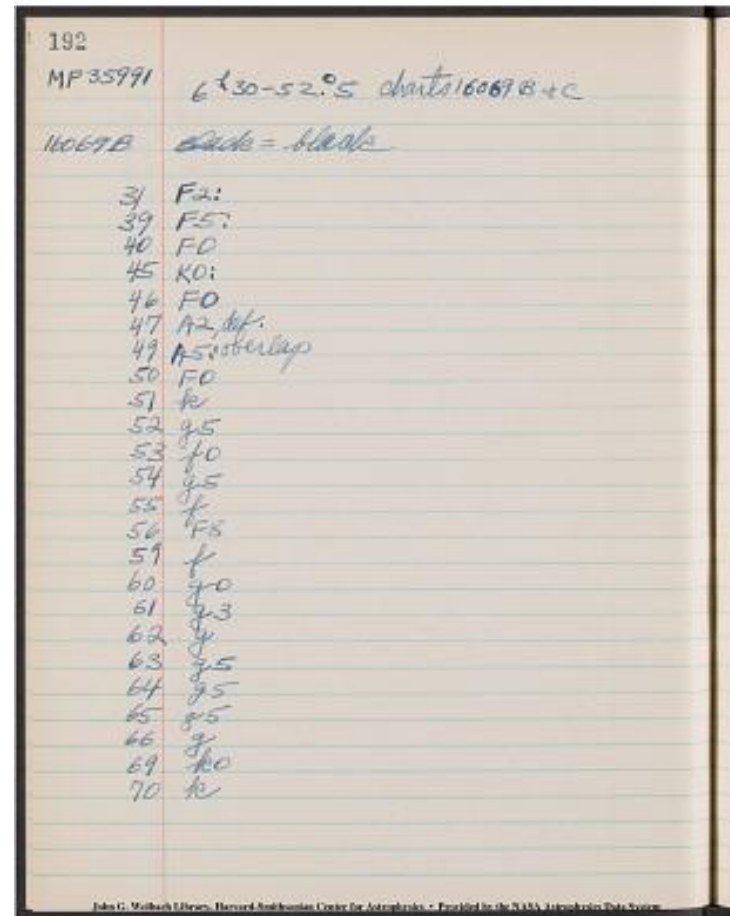 192
MP 35991 6h30-52°.5 charts 16069 B + C
16069B = black
31 F2:
39 F5:
40 F0
45 K0:
46 F0
47 A2, def.
49 A5: overlap
50 F0
51 k
52 g5
53 f0
54 g5
55 f
56 F8
59 f
60 g0
61 g3
62 g
63 g5
64 g5
65 g5
66 g
69 k0
70 k
John G. Wolbach Library, Harvard-Smithsonian Center for Astrophysics • Provided by the NASA Astrophysics Data System